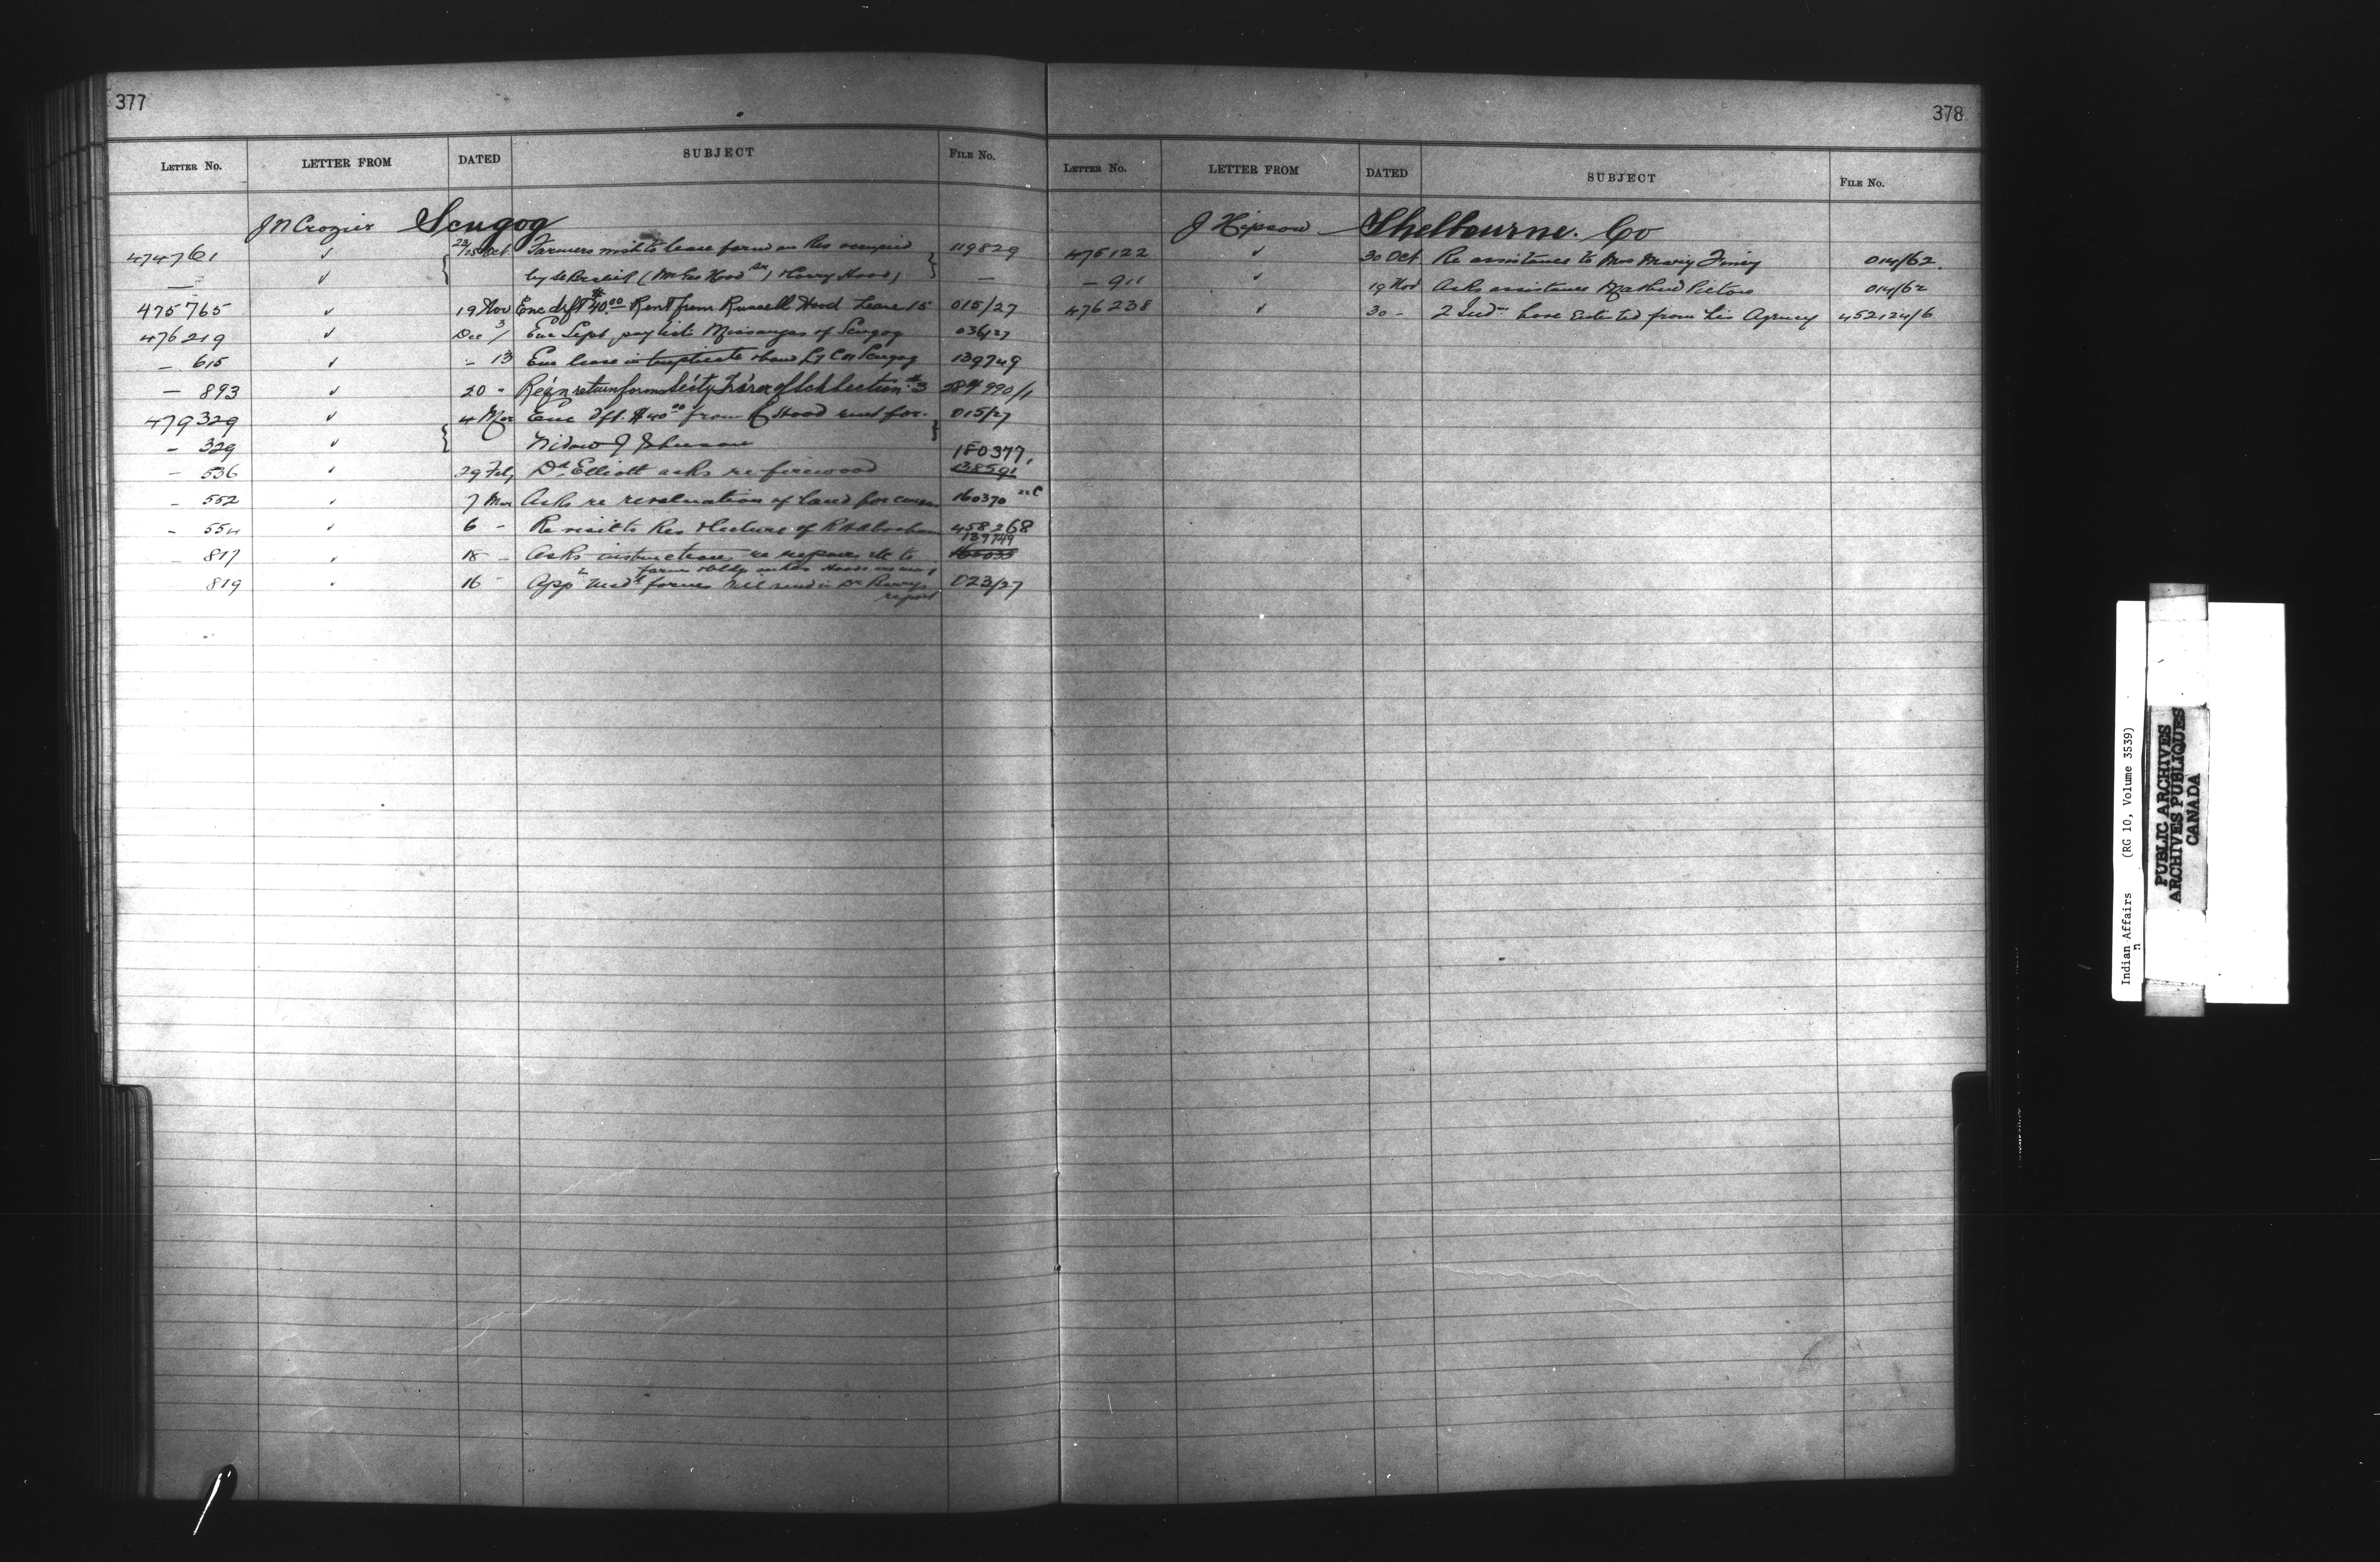 377
LETTER No. LETTER FROM DATED SUBJECT FILE No.
J N Crozier Scugog
474761 ✓ 23/25 Oct Farmers wish to lease farm on Res occupied 119829
— ✓ by (Mr Hood Sr) Harry Hood) —
475765 ✓ 19 Nov Enc dft $40.00 Rent from Russell Hood Lease 15 015/27
476219 ✓ Dec 3/ Enc Sept pay list Missaugas of Scugog 036/27
— 615 ✓ - 13 Enc lease in triplicate Scugog 139749
— 893 ✓ 20 " Section #3 284990/1
479329 ✓ 4 Mar Enc dft. $40.00 from Hood rent for 015/27
- 329 ✓ Widow J Johnson
- 536 ✓ 29 Feb Dr Elliott asks re firewood 180377, 138591
- 552 ✓ 7 Mar Asks re revaluation of land for 160370
- 554 ✓ 6 - Re visit to Res & lecture of 458268
817 ✓ 18 - Asks instructions re repairs etc to 139749
farm
819 ✓ 16 - App Med forms will send in Dr 023/27
report
378
LETTER No. LETTER FROM DATED SUBJECT FILE No.
J Hipson Shelbourne. Co
475122 ✓ 30 Oct Re assistance to Mrs Mary 014/62.
— 911 ✓ 19 Nov Asks assistance 014/62
476238 ✓ 30 - 2 Inds have Enlisted from his Agency 452124/6
Indian Affairs (RG 10, Volume 3539)
PUBLIC ARCHIVES
ARCHIVES PUBLIQUES
CANADA